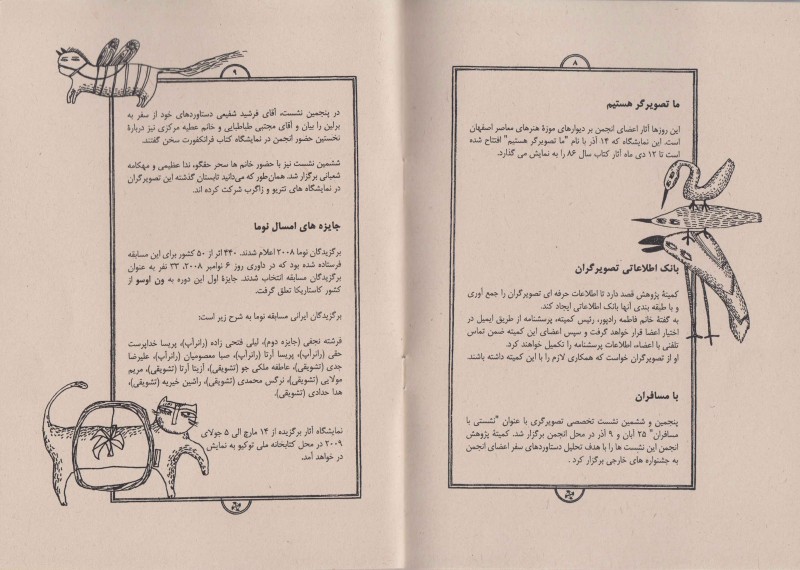 ۸
ما تصویرگر هستیم
این روزها آثار اعضای انجمن بر دیوارهای موزهٔ هنرهای معاصر اصفهان
است. این نمایشگاه که ۱۴ آذر با نام "ما تصویرگر هستیم" افتتاح شده
است تا ۱۲ دی ماه آثار کتاب سال ۸۶ را به نمایش می گذارد.
بانک اطلاعاتی تصویرگران
کمیتهٔ پژوهش قصد دارد تا اطلاعات حرفه ای تصویرگران را جمع آوری
و با طبقه بندی آنها بانک اطلاعاتی ایجاد کند.
به گفتهٔ خانم فاطمه رادپور، رئیس کمیته، پرسشنامه از طریق ایمیل در
اختیار اعضا قرار خواهد گرفت و سپس اعضای این کمیته ضمن تماس
تلفنی با اعضاء، اطلاعات پرسشنامه را تکمیل خواهند کرد.
او از تصویرگران خواست که همکاری لازم را با این کمیته داشته باشند.
با مسافران
پنجمین و ششمین نشست تخصصی تصویرگری با عنوان "نشستی با
مسافران" ۲۵ آبان و ۹ آذر در محل انجمن برگزار شد. کمیتهٔ پژوهش
انجمن این نشست ها را با هدف تحلیل دستاوردهای سفر اعضای انجمن
به جشنواره های خارجی برگزار کرد .
۹
در پنجمین نشست، آقای فرشید شفیعی دستاوردهای خود از سفر به
برلین را بیان و آقای مجتبی طباطبایی و خانم عطیه مرکزی نیز دربارهٔ
نخستین حضور انجمن در نمایشگاه کتاب فرانکفورت سخن گفتند.
ششمین نشست نیز با حضور خانم ها سحر حقگو، ندا عظیمی و مهکامه
شعبانی برگزار شد. همان‌طور که می‌دانید تابستان گذشته این تصویرگران
در نمایشگاه های تتریو و زاگرب شرکت کرده اند.
جایزه های امسال نوما
برگزیدگان نوما ۲۰۰۸ اعلام شدند. ۴۴۰ اثر از ۵۰ کشور برای این مسابقه
فرستاده شده بود که در داوری روز ۶ نوامبر ۲۰۰۸، ۳۳ نفر به عنوان
برگزیدگان مسابقه انتخاب شدند. جایزهٔ اول این دوره به ون اوسو از
کشور کاستاریکا تعلق گرفت.
برگزیدگان ایرانی مسابقه نوما به شرح زیر است:
فرشته نجفی (جایزه دوم)، لیلی فتحی زاده (رانرآپ)، پریسا خداپرست
حقی (رانرآپ)، پریسا آرتا (رانرآپ)، صبا معصومیان (رانرآپ)، علیرضا
جدی (تشویقی)، عاطفه ملکی جو (تشویقی)، آزیتا آرتا (تشویقی)، مریم
مولایی (تشویقی)، نرگس محمدی (تشویقی)، راشین خیریه (تشویقی)،
هدا حدادی (تشویقی).
نمایشگاه آثار برگزیده از ۱۴ مارچ الی ۵ جولای
۲۰۰۹ در محل کتابخانه ملی توکیو به نمایش
در خواهد آمد.